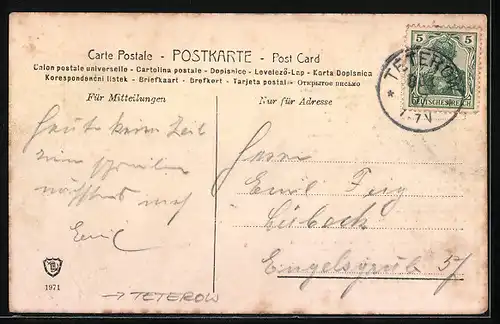 Carte Postale - POSTKARTE - Post Card
Union postale universelle - Cartolina postale - Dopisnice - Levelező-Lap - Karta Dopisnica
Korespondenční lístek - Briefkaart - Brefkort - Tarjeta postal - Открытое письмо
Für Mitteilungen
Nur für Adresse
5 5
DEUTSCHES REICH
TETEROW
* 7-7V
Heute keine Zeit
zum schreiben
nächstens mehr
Emil
Herrn
Emil
Lübeck
Engelsgrube 37
1971
→ TETEROW